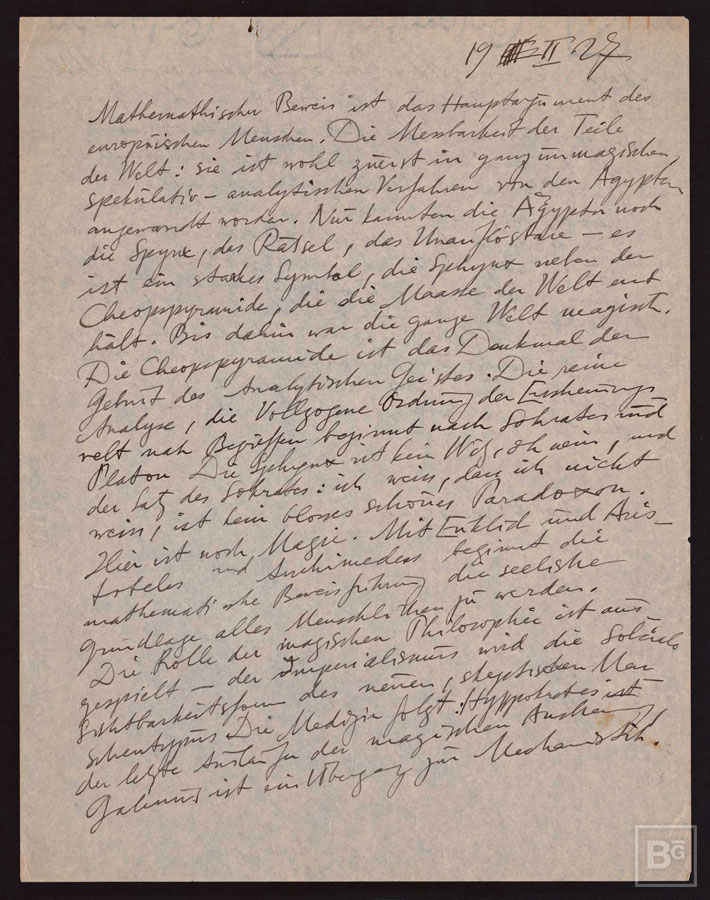 19 II 27
Mathemathischer Beweis ist das Hauptargument des
europäischen Menschen. Die Messbarkeit der Teile
der Welt: sie ist wohl zuerst in ganz unmagischen,
spekulativ-analytischen Verfahren von den Ägyptern
angewandt worden. Nur kannten die Ägypter noch
die Spynx, das Rätsel, das Unauflösbare – es
ist ein starkes Symbol, die Sphynx neben der
Cheopspyramide, die die Maasse der Welt ent
hält. Bis dahin war die ganze Welt magisch.
Die Cheopspyramide ist das Denkmal der
Geburt des Analytischen Geistes. Die reine
Analyse, die Vollzogene Ordnung der Erscheinungs
welt nach Begriffen beginnt nach Sokrates und
Platon. Die Sphynx ist kein Weg, oh nein, und
der Satz des Sokrates: ich weiss, dass ich nicht
weiss, ist kein blosses schönes Paradoxon.
Hier ist noch Magie. Mit Euklid und Aris-
toteles und Archimedes beginnt die
mathematische Beweisführung die seelische
Grundlage alles Menschlichen zu werden.
Die Rolle der magischen Philosophie ist aus
gespielt – der Imperialismus wird die
Sichtbarkeitsform des neuen, skeptischen Men
schentypus. Die Medizin folgt: Hyppokrates ist
der letzte Ausläufer der magischen
Galenus ist ein Übergang zur
BG